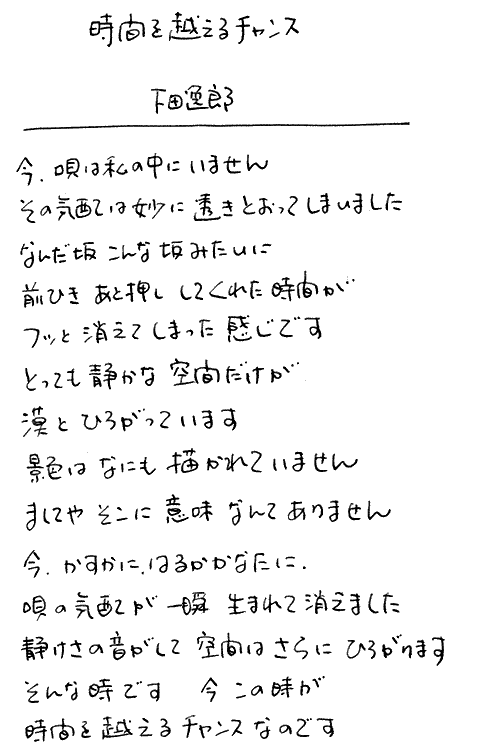 時間を越えるチャンス
下田逸郎
今、唄は私の中にいません
その気配では妙に透きとおってしまいました
なんだ坂 こんな坂みたいに
前ひき あと押し してくれた時間が
フッと 消えてしまった 感じです
とっても 静かな 空間だけが
漠と ひろがっています
景色は なにも 描かれていません
ましてや そこに 意味 なんて ありません
今、かすかに、はるかかなたに、
唄の気配が 一瞬 生まれて 消えました
静けさの音がして 空間は さらに ひろがります
そんな時です 今 この時が
時間を 越える チャンス なのです